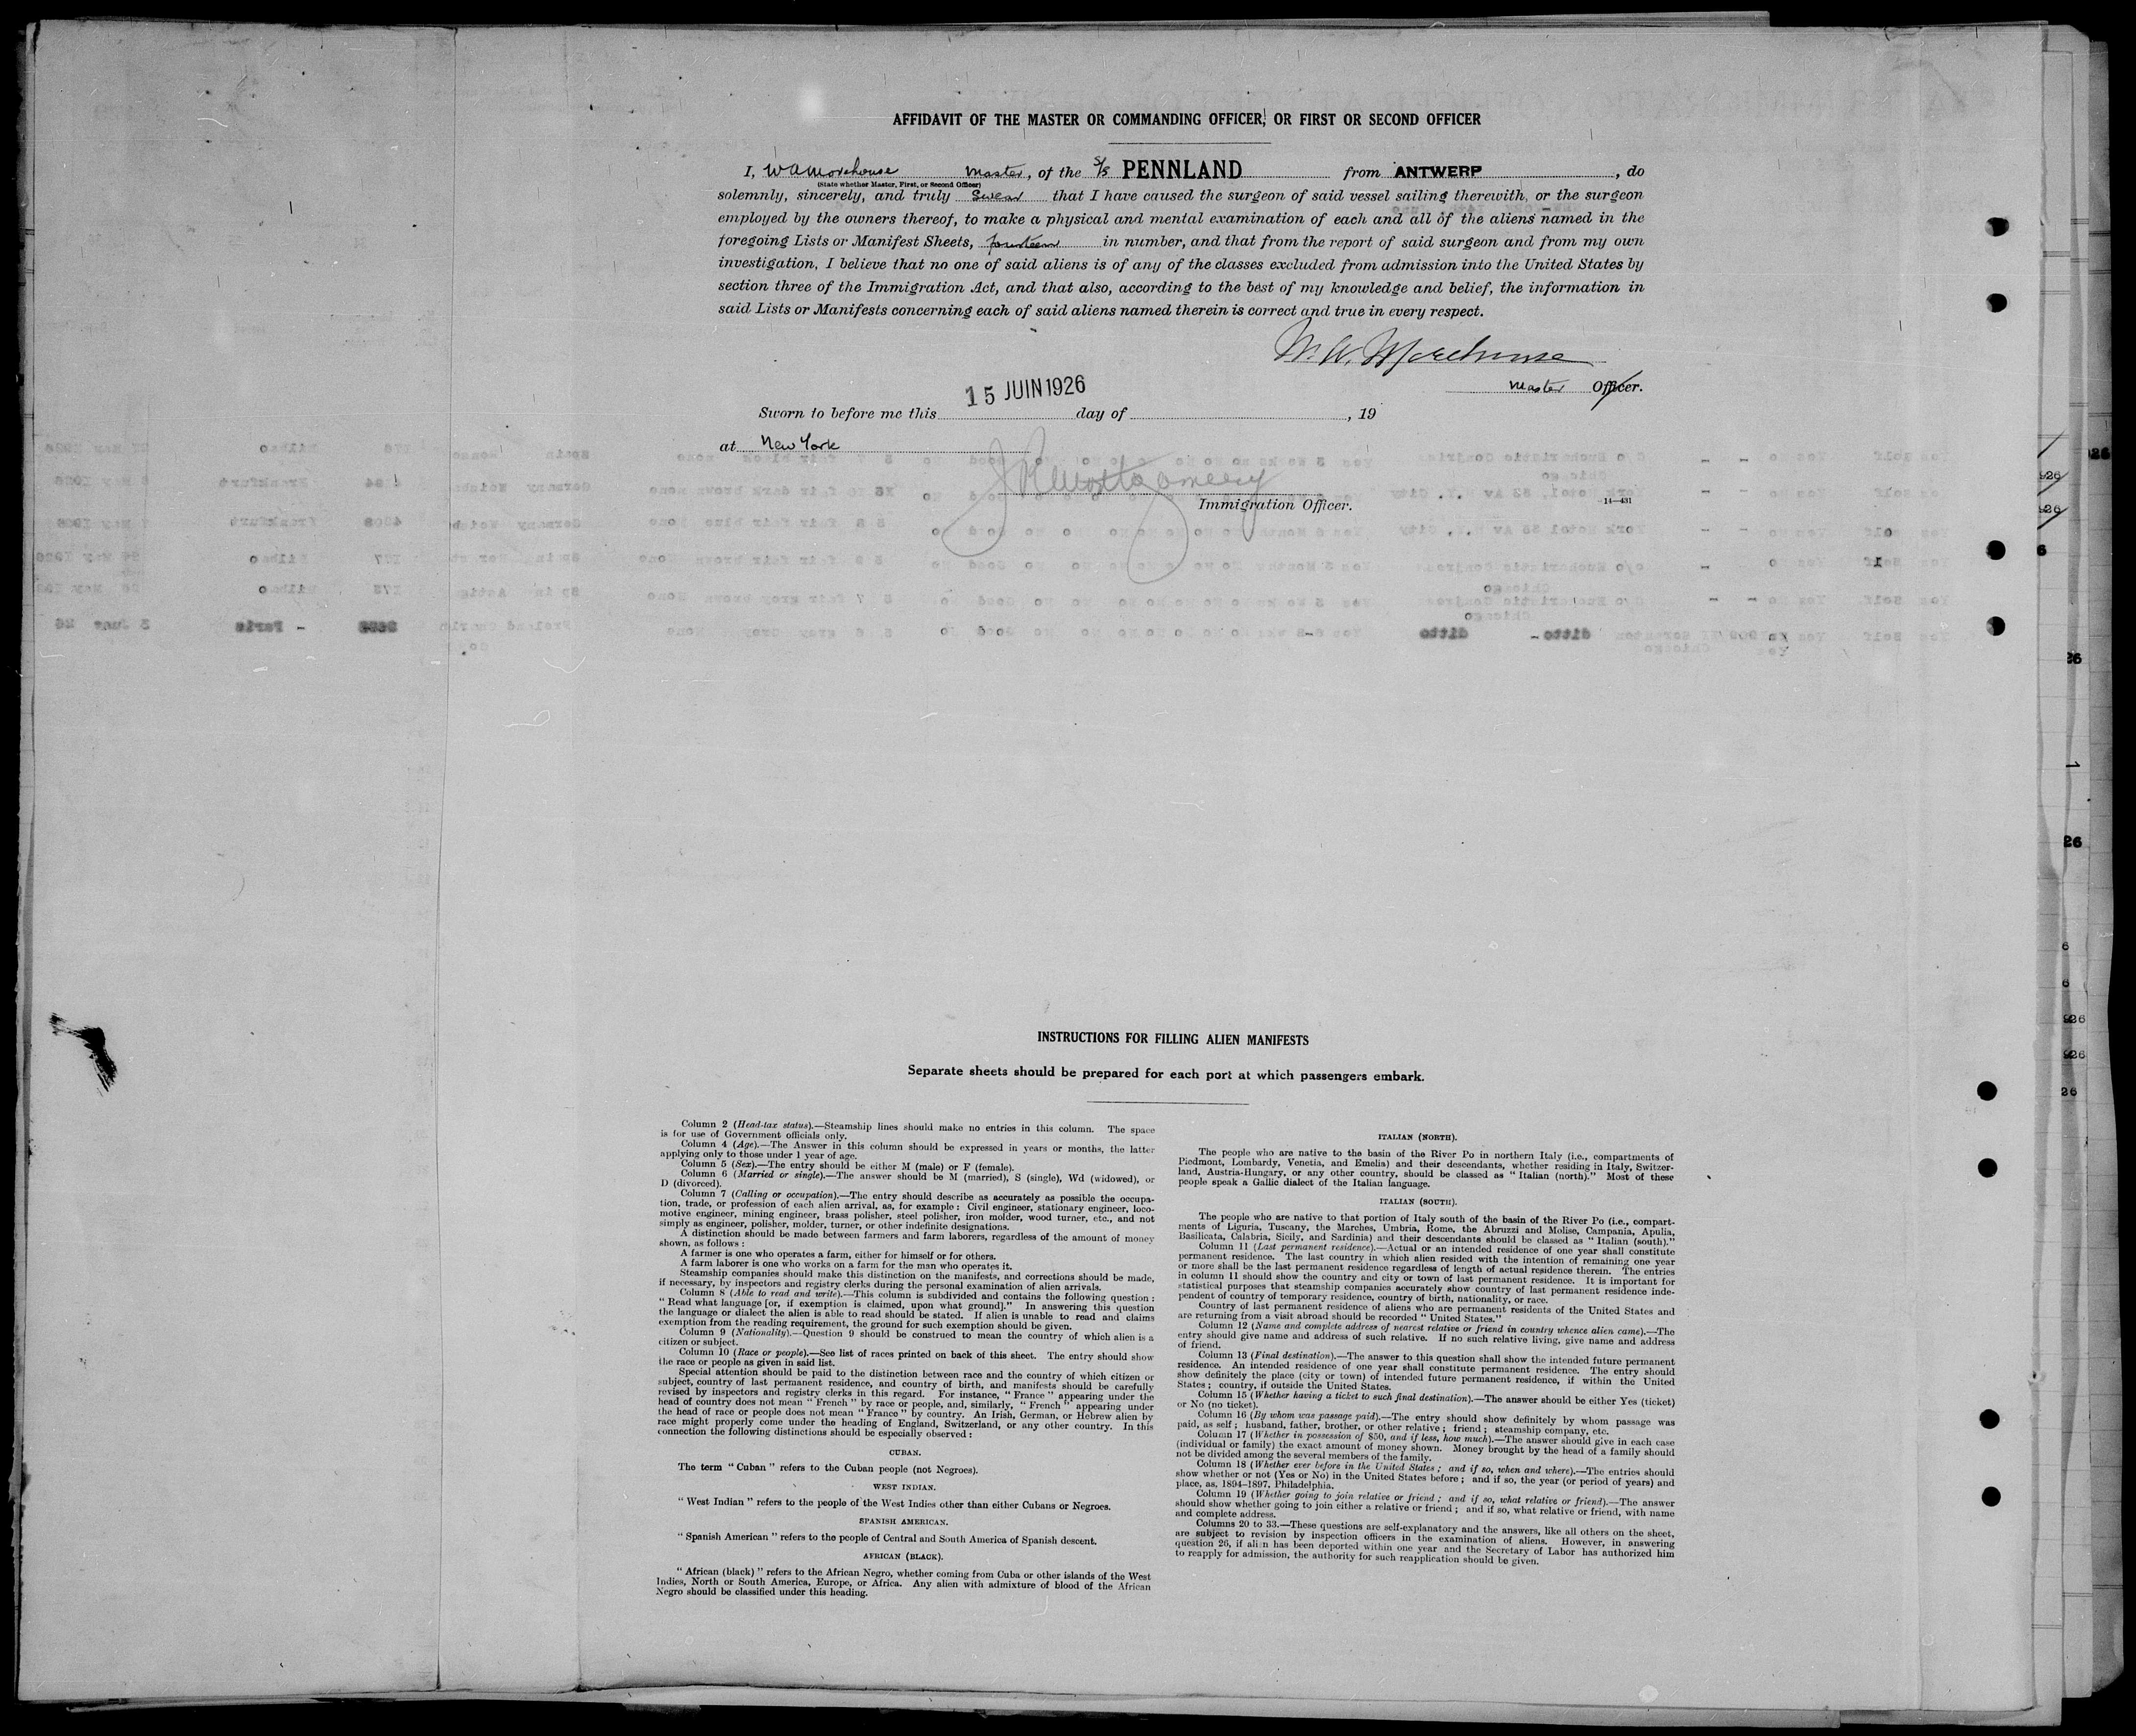 AFFIDAVIT OF THE MASTER OR COMMANDING OFFICER, OR FIRST OR SECOND OFFICER
I, W A Morehouse Master, of the S/S PENNLAND from ANTWERP, do
(State whether Master, First, or Second Officer)
solemnly, sincerely, and truly Swear that I have caused the surgeon of said vessel sailing therewith, or the surgeon
employed by the owners thereof, to make a physical and mental examination of each and all of the aliens named in the
foregoing Lists or Manifest Sheets, fourteen in number, and that from the report of said surgeon and from my own
investigation, I believe that no one of said aliens is of any of the classes excluded from admission into the United States by
section three of the Immigration Act, and that also, according to the best of my knowledge and belief, the information in
said Lists or Manifests concerning each of said aliens named therein is correct and true in every respect.
Morehouse
Master Officer.
15 JUIN 1926
Sworn to before me this day of , 19
at New York
Montgomery
Immigration Officer.
14—431
INSTRUCTIONS FOR FILLING ALIEN MANIFESTS
Separate sheets should be prepared for each port at which passengers embark.
Column 2 (Head-tax status).—Steamship lines should make no entries in this column. The space
is for use of Government officials only.
Column 4 (Age).—The Answer in this column should be expressed in years or months, the latter
applying only to those under 1 year of age.
Column 5 (Sex).—The entry should be either M (male) or F (female).
Column 6 (Married or single).—The answer should be M (married), S (single), Wd (widowed), or
D (divorced).
Column 7 (Calling or occupation).—The entry should describe as accurately as possible the occupa-
tion, trade, or profession of each alien arrival, as, for example: Civil engineer, stationary engineer, loco-
motive engineer, mining engineer, brass polisher, steel polisher, iron molder, wood turner, etc., and not
simply as engineer, polisher, molder, turner, or other indefinite designations.
A distinction should be made between farmers and farm laborers, regardless of the amount of money
shown, as follows:
A farmer is one who operates a farm, either for himself or for others.
A farm laborer is one who works on a farm for the man who operates it.
Steamship companies should make this distinction on the manifests, and corrections should be made,
if necessary, by inspectors and registry clerks during the personal examination of alien arrivals.
Column 8 (Able to read and write).—This column is subdivided and contains the following question:
"Read what language [or, if exemption is claimed, upon what ground]." In answering this question
the language or dialect the alien is able to read should be stated. If alien is unable to read and claims
exemption from the reading requirement, the ground for such exemption should be given.
Column 9 (Nationality).—Question 9 should be construed to mean the country of which alien is a
citizen or subject.
Column 10 (Race or people).—See list of races printed on back of this sheet. The entry should show
the race or people as given in said list.
Special attention should be paid to the distinction between race and the country of which citizen or
subject, country of last permanent residence, and country of birth, and manifests should be carefully
revised by inspectors and registry clerks in this regard. For instance, "France" appearing under the
head of country does not mean "French" by race or people, and, similarly, "French" appearing under
the head of race or people does not mean "France" by country. An Irish, German, or Hebrew alien by
race might properly come under the heading of England, Switzerland, or any other country. In this
connection the following distinctions should be especially observed:
CUBAN.
The term "Cuban" refers to the Cuban people (not Negroes).
WEST INDIAN.
"West Indian" refers to the people of the West Indies other than either Cubans or Negroes.
SPANISH AMERICAN.
"Spanish American" refers to the people of Central and South America of Spanish descent.
AFRICAN (BLACK).
"African (black)" refers to the African Negro, whether coming from Cuba or other islands of the West
Indies, North or South America, Europe, or Africa. Any alien with admixture of blood of the African
Negro should be classified under this heading.
ITALIAN (NORTH).
The people who are native to the basin of the River Po in northern Italy (i.e., compartments of
Piedmont, Lombardy, Venetia, and Emelia) and their descendants, whether residing in Italy, Switzer-
land, Austria-Hungary, or any other country, should be classed as "Italian (north)." Most of these
people speak a Gallic dialect of the Italian language.
ITALIAN (SOUTH).
The people who are native to that portion of Italy south of the basin of the River Po (i.e., compart-
ments of Liguria, Tuscany, the Marches, Umbria, Rome, the Abruzzi and Molise, Campania, Apulia,
Basilicata, Calabria, Sicily, and Sardinia) and their descendants should be classed as "Italian (south)."
Column 11 (Last permanent residence).—Actual or an intended residence of one year shall constitute
permanent residence. The last country in which alien resided with the intention of remaining one year
or more shall be the last permanent residence regardless of length of actual residence therein. The entries
in column 11 should show the country and city or town of last permanent residence. It is important for
statistical purposes that steamship companies accurately show country of last permanent residence inde-
pendent of country of temporary residence, country of birth, nationality, or race.
Country of last permanent residence of aliens who are permanent residents of the United States and
are returning from a visit abroad should be recorded "United States."
Column 12 (Name and complete address of nearest relative or friend in country whence alien came).—The
entry should give name and address of such relative. If no such relative living, give name and address
of friend.
Column 13 (Final destination).—The answer to this question shall show the intended future permanent
residence. An intended residence of one year shall constitute permanent residence. The entry should
show definitely the place (city or town) of intended future permanent residence, if within the United
States; country, if outside the United States.
Column 15 (Whether having a ticket to such final destination).—The answer should be either Yes (ticket)
or No (no ticket).
Column 16 (By whom was passage paid).—The entry should show definitely by whom passage was
paid, as self; husband, father, brother, or other relative; friend; steamship company, etc.
Column 17 (Whether in possession of $50, and if less, how much).—The answer should give in each case
(individual or family) the exact amount of money shown. Money brought by the head of a family should
not be divided among the several members of the family.
Column 18 (Whether ever before in the United States; and if so, when and where).—The entries should
show whether or not (Yes or No) in the United States before; and if so, the year (or period of years) and
place, as, 1894-1897, Philadelphia.
Column 19 (Whether going to join relative or friend; and if so, what relative or friend).—The answer
should show whether going to join either a relative or friend; and if so, what relative or friend, with name
and complete address.
Columns 20 to 33.—These questions are self-explanatory and the answers, like all others on the sheet,
are subject to revision by inspection officers in the examination of aliens. However, in answering
question 26, if alien has been deported within one year and the Secretary of Labor has authorized him
to reapply for admission, the authority for such reapplication should be given.